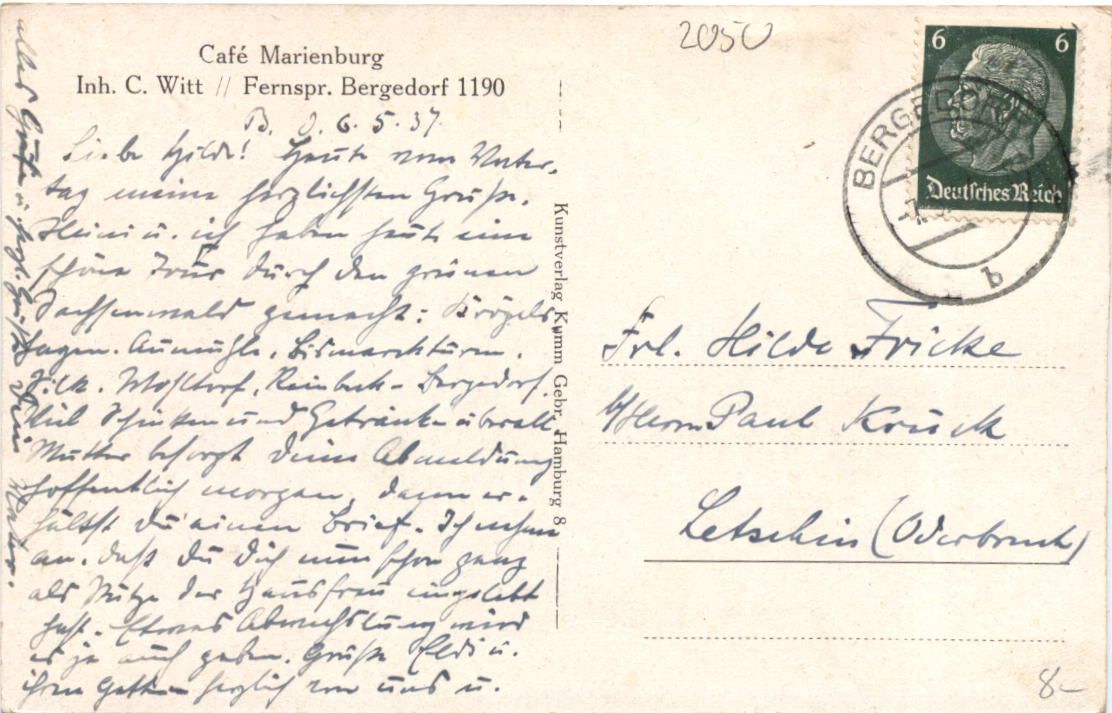 2050
Café Marienburg
Inh. C. Witt // Fernspr. Bergedorf 1190
B. d. 6.5.37.
Liebe Hilde! Heute vom Vater-
tag meine herzlichsten Grüße.
Heini u. ich haben heute eine
schöne Tour durch den grünen
Sachsenwald gemacht: Kröppels
hagen. Aumühle, Bismarckturm,
Silk. Wohltorf, Reinbek - Bergedorf.
Viel Schinken und Getränke überall.
Mutter besorgt deine Abmeldung
hoffentlich morgen, dann er-
hältst du einen Brief. Ich nehme
an, daß Du Dich nun schon ganz
als Stütze der Hausfrau eingelebt
hast. Etwas Abwechslung wird
es ja auch geben. Grüße Eldi u.
ihren Gatten herzlich von uns u.
alles Gute u. herzl. Grüße Dein Vater.
Kunstverlag Kumm Gebr. Hamburg 8
6 6
Deutsches Reich
BERGEDORF
b
Frl. Hilde Fricke
b/Herrn Paul Kruck
Letschin (Oderbruch)
8-